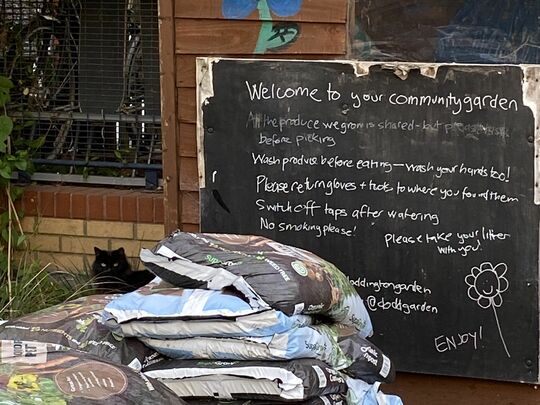 Welcome to your community garden
All the produce we grow is shared - but please ask
before picking
Wash produce before eating - wash your hands too!
Please return gloves + tools to where you found them
Switch off taps after watering
No smoking please!
Please take your litter
with you!
@doddgarden
ENJOY!